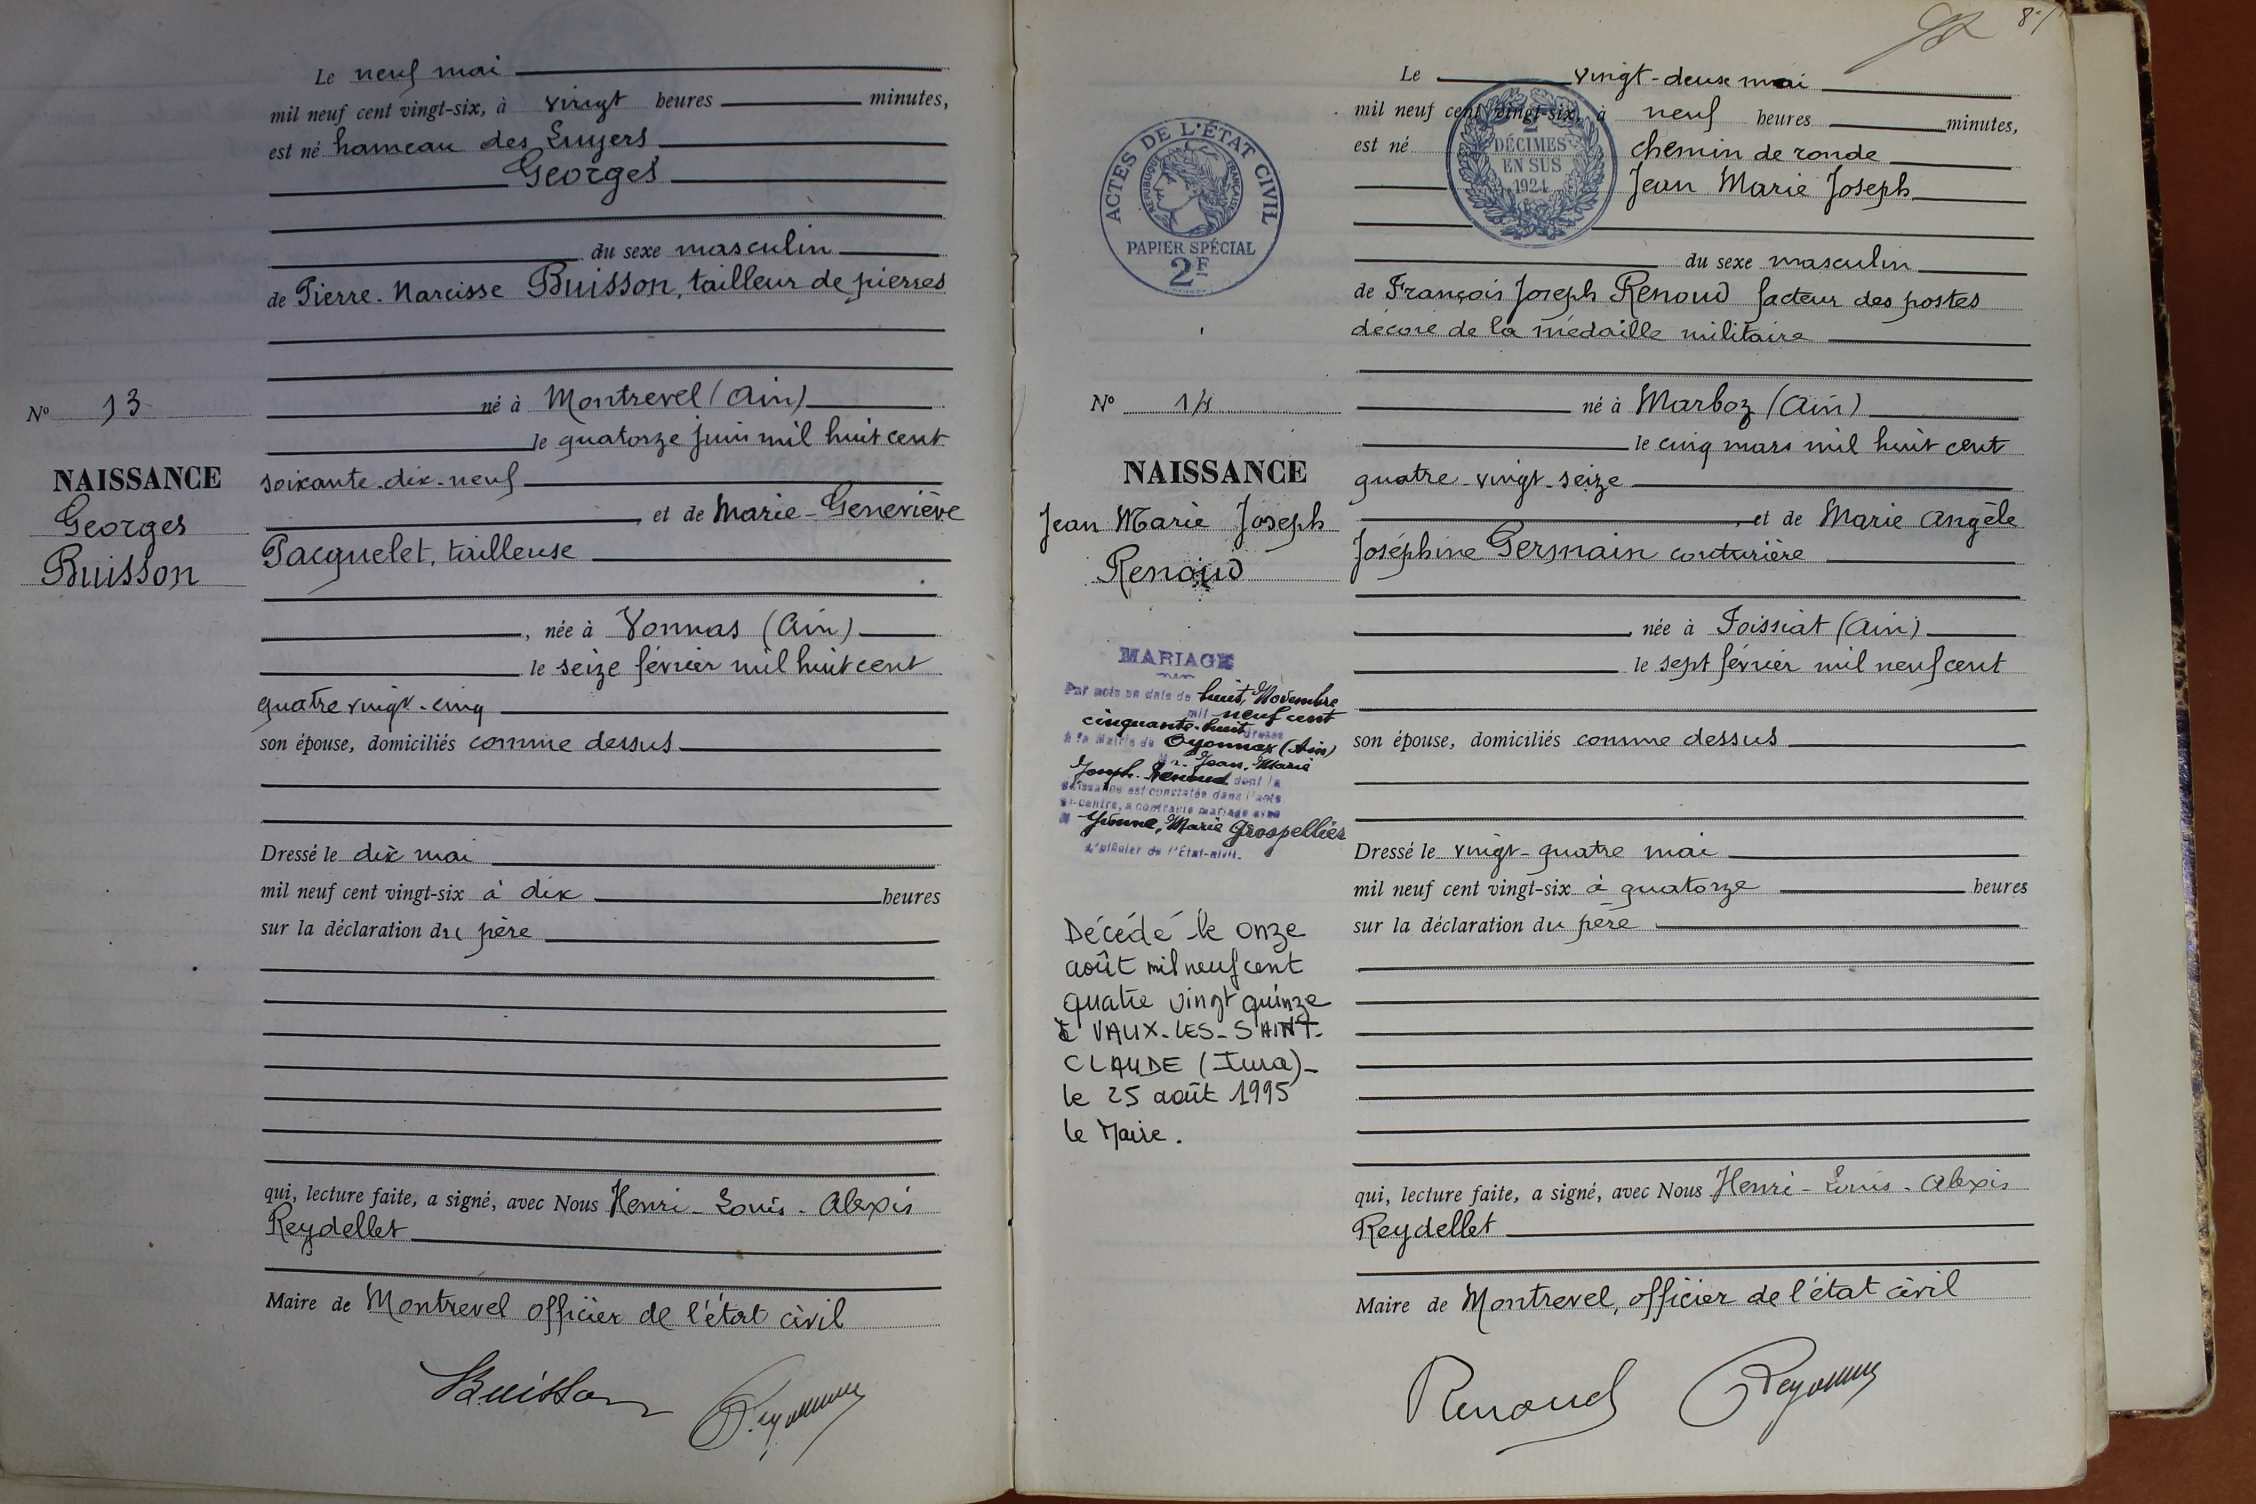 Le neuf mai
mil neuf cent vingt-six, à vingt heures minutes,
est né hameau des Luyers
Georges
du sexe masculin
de Pierre-Narcisse Buisson, tailleur de pierres
né à Montrevel (Ain)
le quatorze juin mil huit cent
soixante-dix-neuf
et de Marie-Geneviève
Pacquelet, tailleuse
, née à Vonnas (Ain)
le seize février mil huit cent
quatre vingt-cinq
son épouse, domiciliés comme dessus
Dressé le dix mai
mil neuf cent vingt-six à dix heures
sur la déclaration du père
qui, lecture faite, a signé, avec Nous Henri-Louis-Alexis
Reydellet
Maire de Montrevel officier de l'état civil
Buisson
N° 13
NAISSANCE
Georges
Buisson
Le vingt-deux mai
mil neuf cent vingt-six, à neuf heures minutes,
est né chemin de ronde
Jean Marie Joseph
du sexe masculin
de François Joseph Renoud facteur des postes
décoré de la médaille militaire
né à Marboz (Ain)
le cinq mars mil huit cent
quatre-vingt-seize
, et de Marie Angèle
Joséphine Germain couturière
, née à Foissiat (Ain)
le sept février mil neuf cent
son épouse, domiciliés comme dessus
Dressé le vingt-quatre mai
mil neuf cent vingt-six à quatorze heures
sur la déclaration du père
qui, lecture faite, a signé, avec Nous Henri-Louis-Alexis
Reydellet
Maire de Montrevel, officier de l'état civil
Renoud
ACTES DE L'ÉTAT CIVIL
RÉPUBLIQUE FRANÇAISE
PAPIER SPÉCIAL
2F
2
DÉCIMES
EN SUS
1924
N° 14
NAISSANCE
Jean Marie Joseph
Renoud
MARIAGE
Par acte en date du huit Novembre
mil neuf cent
cinquante-huit dressé
à la Mairie de Oyonnax (Ain)
Mr. Jean, Marie
Joseph Renoud dont la
naissance est constatée dans l'acte
ci-contre, a contracté mariage avec
M Yvonne, Marie Grospellier
L'officier de l'État-civil.
Décédé le onze
août mil neuf cent
quatre vingt quinze
à VAUX-LES-SAINT-
CLAUDE (Jura)-
le 25 août 1995
le Maire.